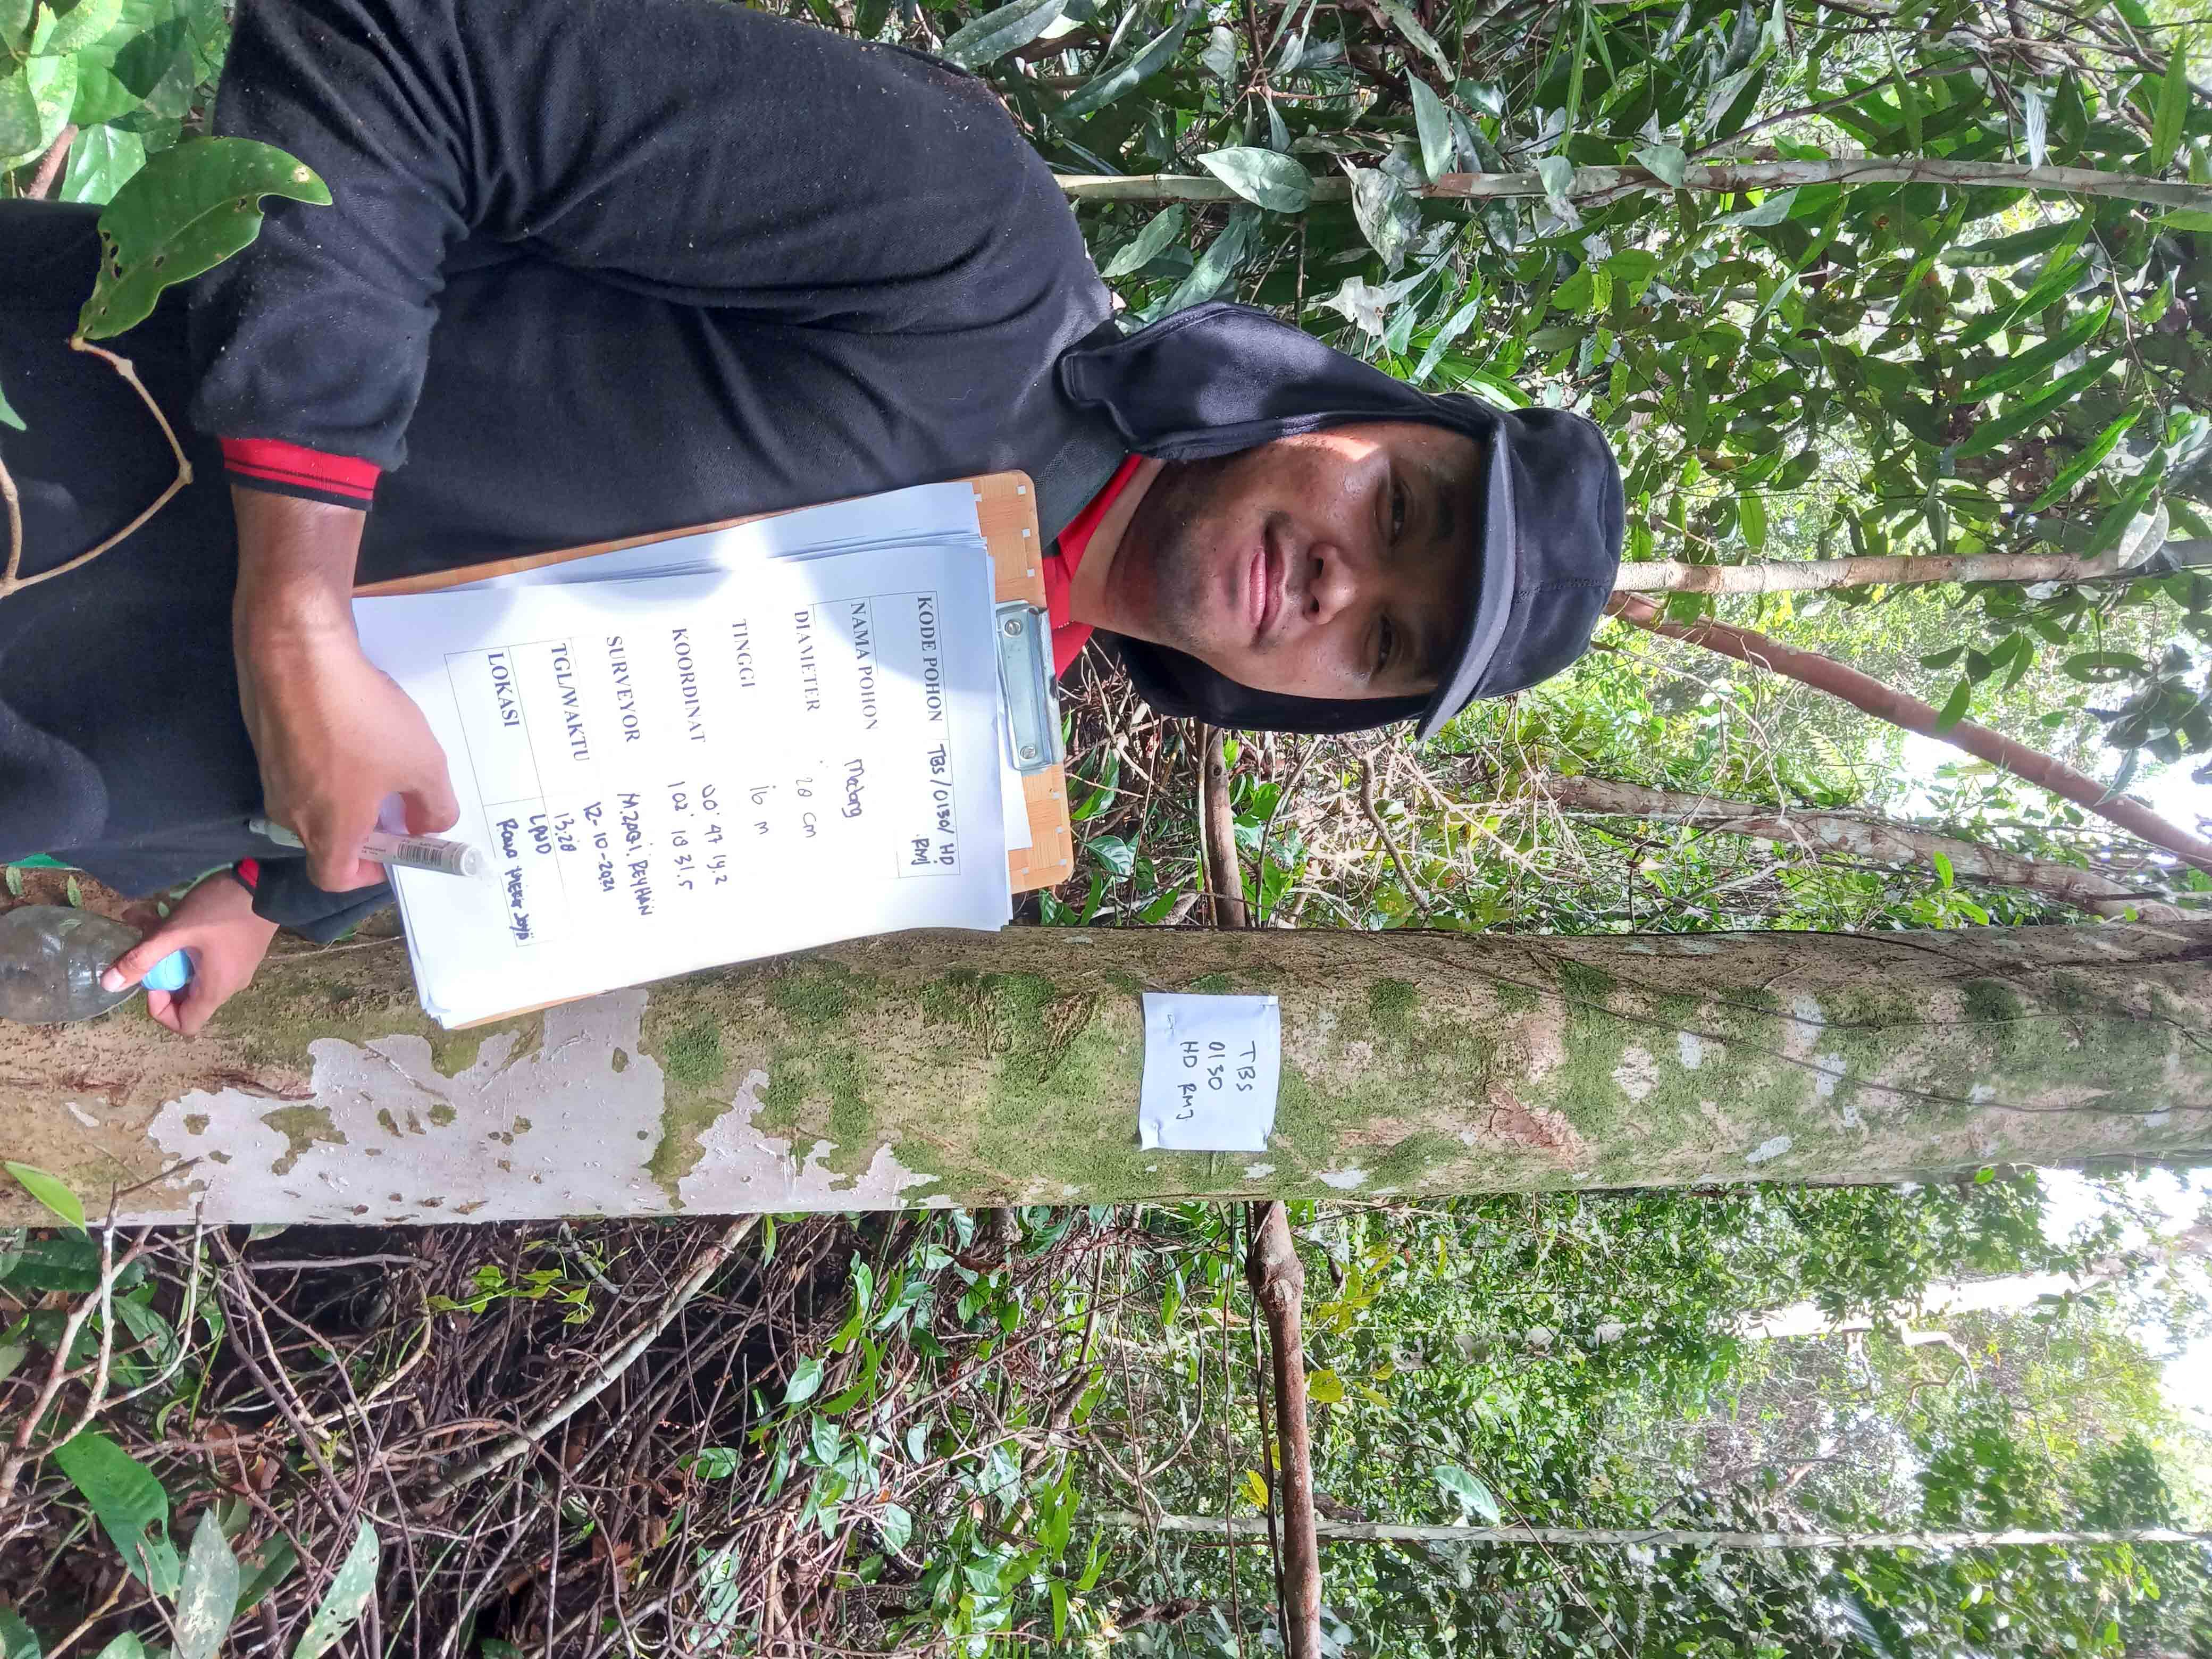 KODE POHON TBS/0130/HD
RMJ
NAMA POHON Medang
DIAMETER 20 cm
TINGGI 16 m
KOORDINAT 00° 47 19,2
102° 10 31.5
SURVEYOR
TGL/WAKTU 12-10-2021
13,20
LOKASI LPHD
TBS
0130
HD RMJ